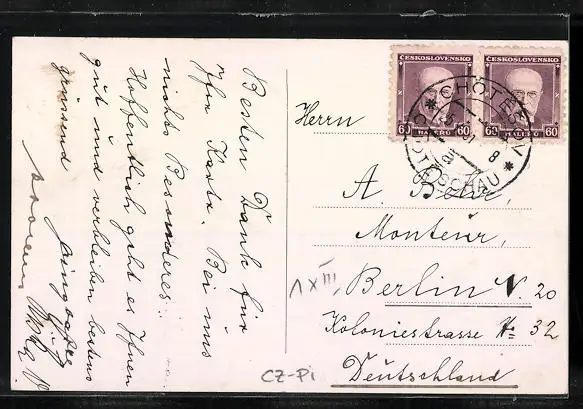 Besten Dank für
Ihre Karte. Bei uns
nichts Besonderes.
Hoffentlich geht es Ihnen
gut und verbleiben bestens
grüssend
ČESKOSLOVENSKO
60 HALÉŘŮ 60
ČESKOSLOVENSKO
60 HALÉŘŮ 60
Herrn
A. Behr,
Monteur,
Berlin N. 20
Koloniestrasse № 32
Deutschland
CZ-Pi